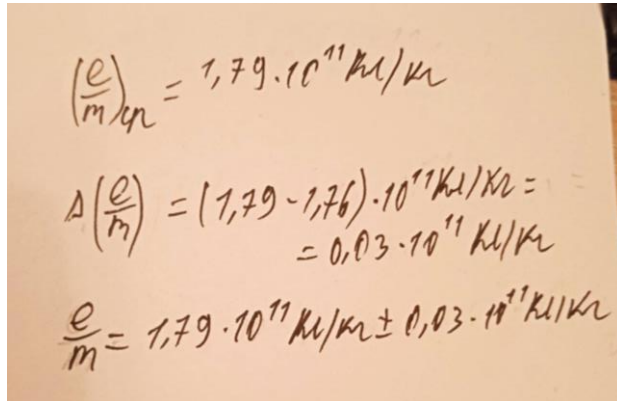 (e/m)ср = 1,79·10¹¹ Кл/кг
Δ(e/m) = (1,79 - 1,76)·10¹¹ Кл/кг =
= 0,03·10¹¹ Кл/кг
e/m = 1,79·10¹¹ Кл/кг ± 0,03·10¹¹ Кл/кг